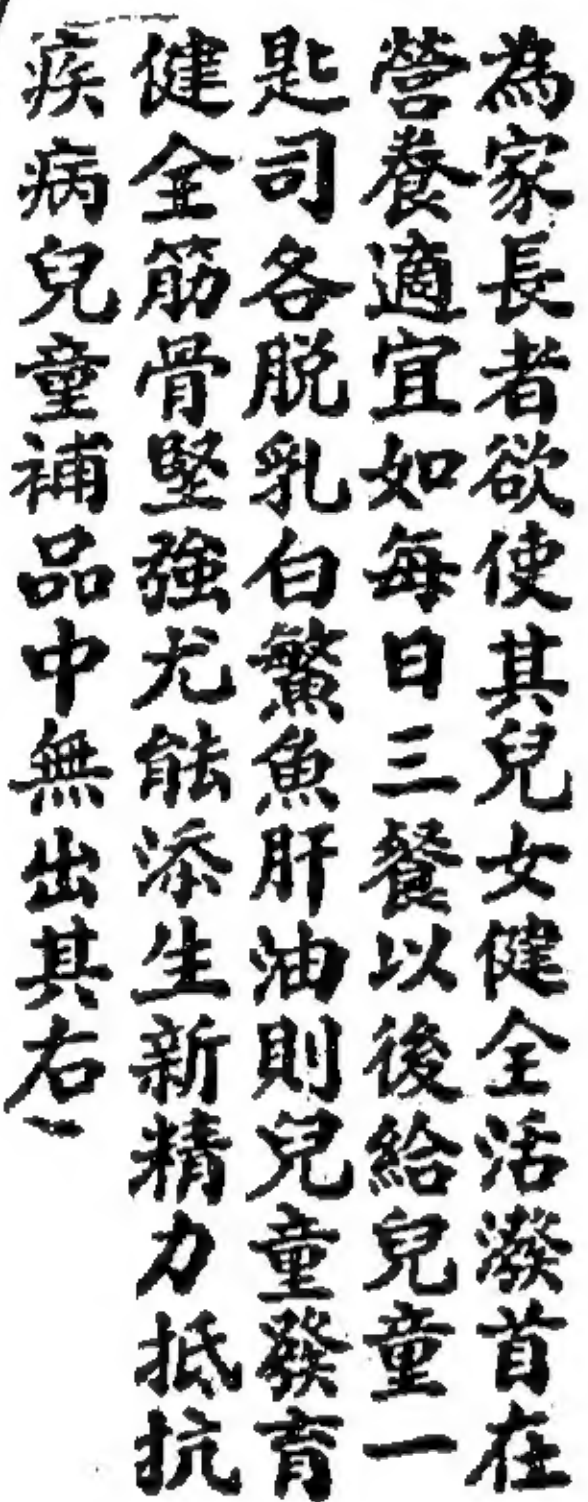 為家長者欲使其兒女健全活潑首在
營養適宜如每日三餐以後給兒童一
匙司各脱乳白鰵魚肝油則兒童發育
健全筋骨堅強尤能添生新精力抵抗
疾病兒童補品中無出其右